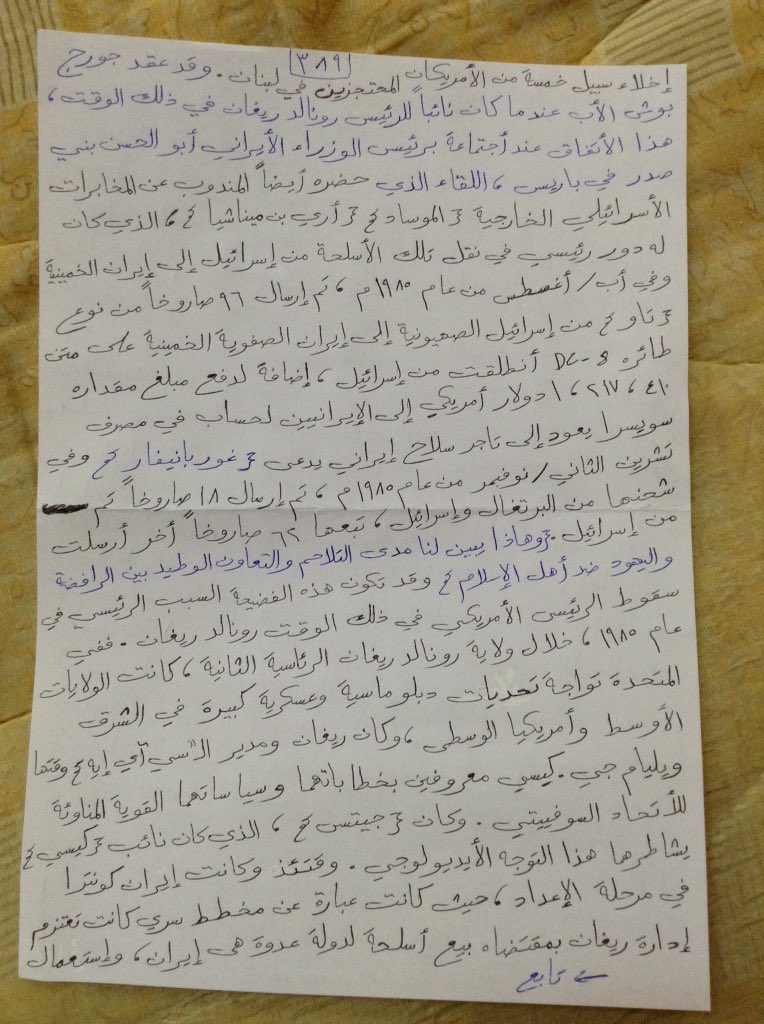 ٣٨٩
إخلاء سبيل خمسة من الأمريكان المحتجزين في لبنان. وقد عقد جورج
بوش الأب عندما كان نائباً للرئيس رونالد ريغان في ذلك الوقت،
هذا الأتفاق عند أجتماعة برئيس الوزراء الأيراني أبو الحسن بني
صدر في باريس، اللقاء الذي حضره أيضاً المندوب عن المخابرات
الأسرائيلي الخارجية "الموساد" "أري بن ميناشيا"، الذي كان
له دور رئيسي في نقل تلك الأسلحة من إسرائيل إلى إيران الخمينية
وفي أب/أغسطس من عام ١٩٨٥م، تم إرسال ٩٦ صاروخاً من نوع
"تاو" من إسرائيل الصهيونية إلى إيران الصفوية الخمينية على متن
طائره DC-8 أنطلقت من إسرائيل، إضافة لدفع مبلغ مقداره
١،٢١٧،٤١٠ دولار أمريكي إلى الإيرانيين لحساب في مصرف
سويسرا يعود إلى تاجر سلاح إيراني يدعى "غوربانيفار" وفي
تشرين الثاني/نوفيمبر من عام ١٩٨٥م، تم إرسال ١٨ صاروخاً تم
شحنها من البرتغال وإسرائيل، تبعها ٦٢ صاروخاً أخر أرسلت
من إسرائيل. "وهاذا يبين لنا مدى التلاحم والتعاون الوطيد بين الرافضة
واليهود ضد أهل الإسلام" وقد تكون هذه الفضيحة السبب الرئيسي في
سقوط الرئيس الأمريكي في ذلك الوقت رونالد ريغان. ففي
عام ١٩٨٥، خلال ولاية رونالد ريغان الرئاسية الثانية، كانت الولايات
المتحدة تواجة تحديات دبلوماسية وعسكرية كبيرة في الشرق
الأوسط وأمريكيا الوسطى، وكان ريغان ومدير الـ"سي آي إيه" وقتها
ويليام جي. كيسي معروفين بخطاباتهما وسياساتهما القوية المناوئة
للأتحاد السوفييتي. وكان "جيتس"، الذي كان نائب "كيسي"
يشاطرها هذا التوجه الأيديولوجي. وقتئذ وكانت إيران كونترا
في مرحلة الإعداد، حيث كانت عبارة عن مخطط سري كانت تعتزم
إدارة ريغان بمقتضاه بيع أسلحة لدولة عدوة هى إيران، وإستعمال
← تابع